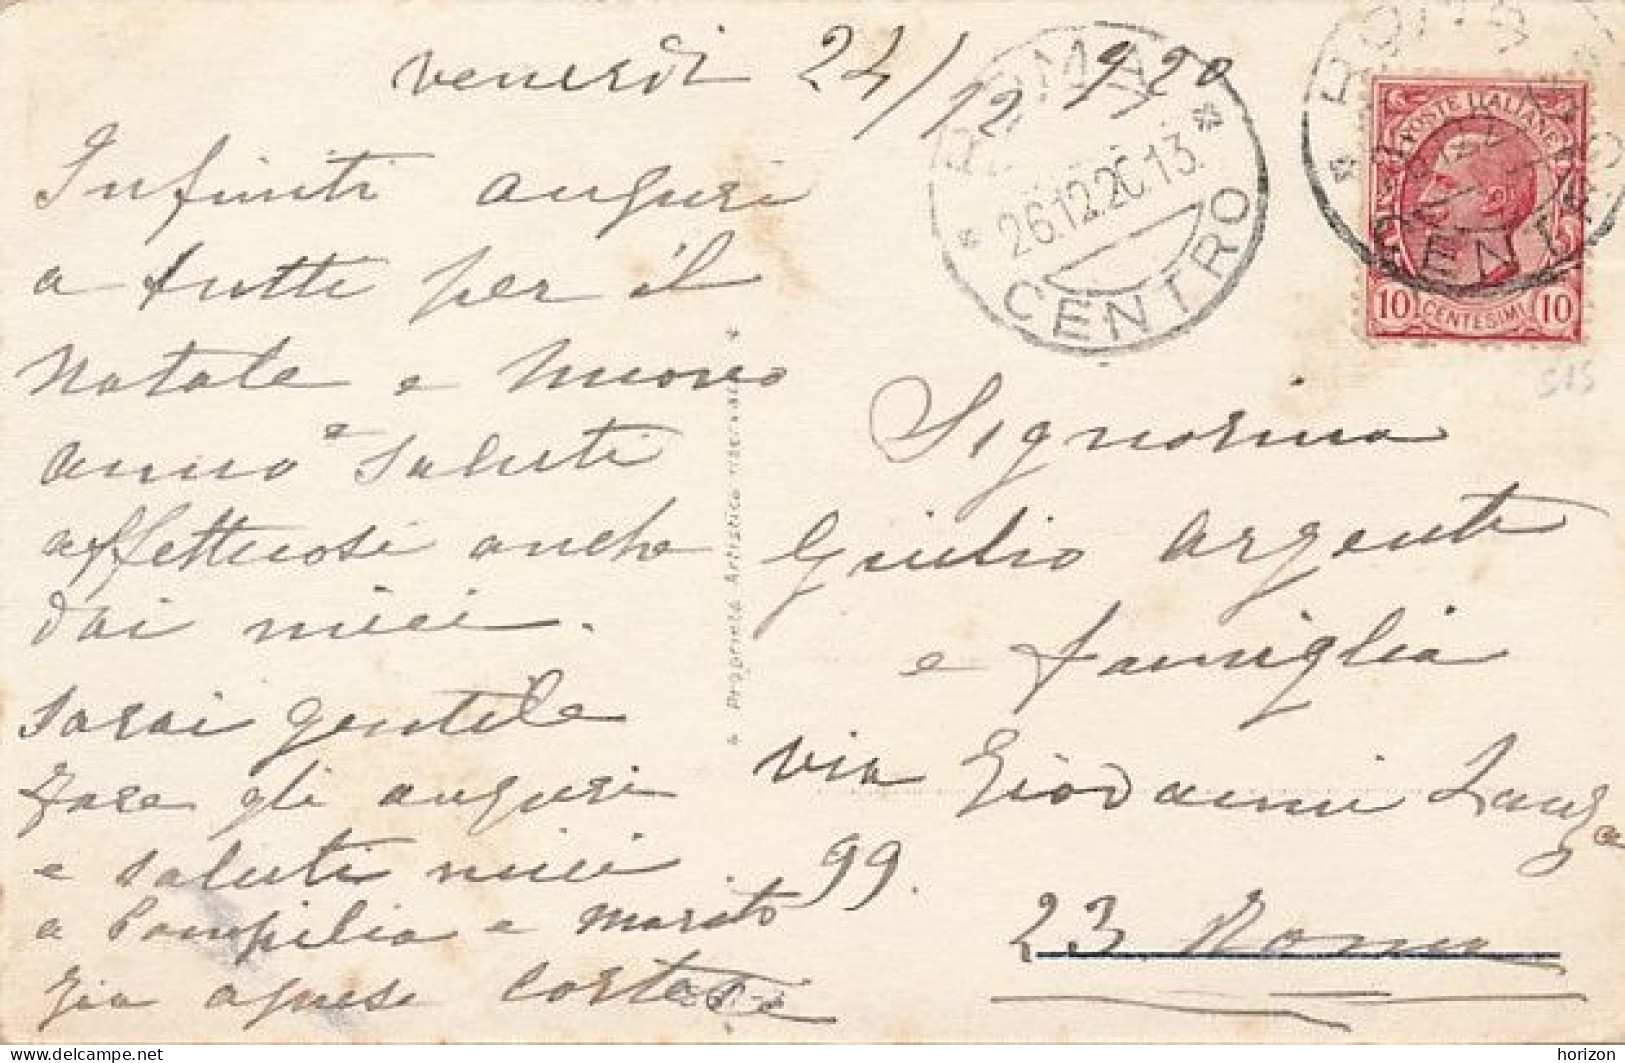 venerdi 24/12 920
Infiniti auguri
a tutti per il
Natale e nuovo
anno e saluti
affettuosi anche
dai miei.
sarai gentile
fare gli auguri
e saluti miei
a Pompilia e marito
zia agnese Cortesi
* Proprietà Artistica riservata *
ROMA
* 26.12.20.13. *
CENTRO
ROMA
CENTRO
POSTE ITALIANE
10 CENTESIMI 10
515
Signorina
Giulio Argenti
e famiglia
via Giovanni Lanza
99.
23 Roma
delcampe.net
horizon